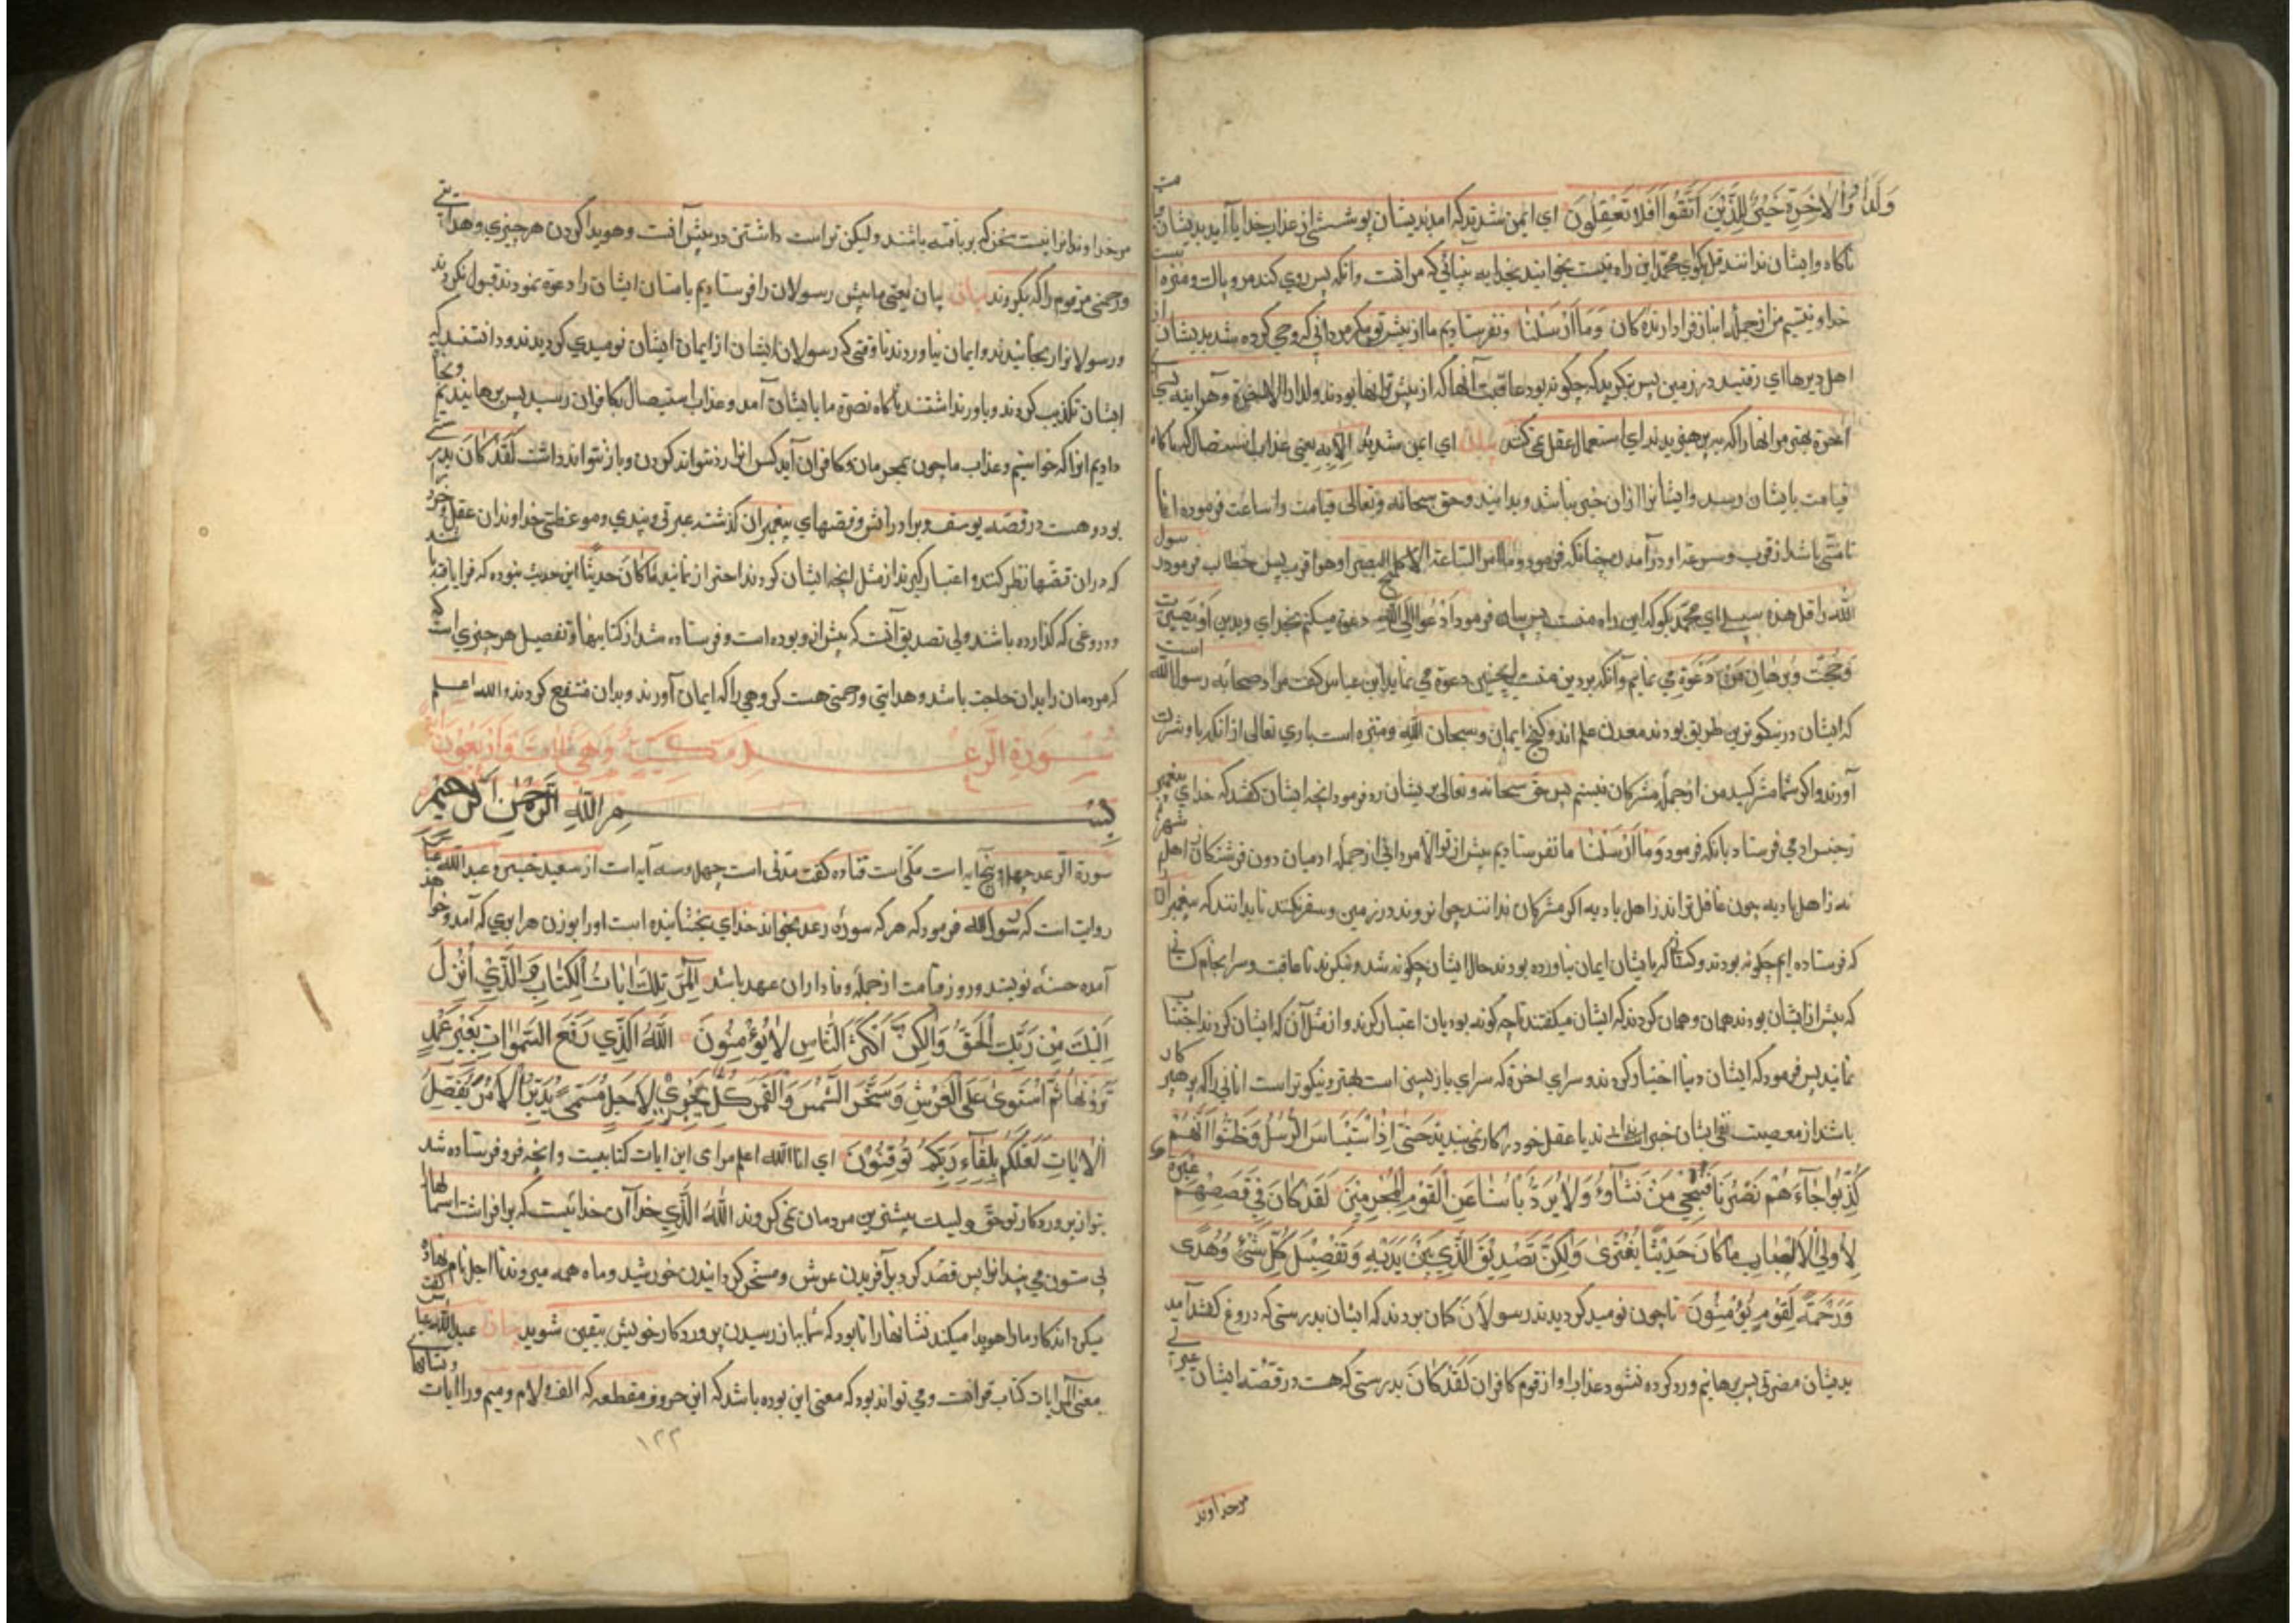 وَلَدَارُ وَالْاٰخِرَةِ خَيْرٌ لِلَّذِيْنَ اتَّقَوْا اَفَلَا تَعْقِلُوْنَ اي ايمن شدند كه آمد بديشان پوششي از عذاب خدا يا آيد بديشان قيامت
ناكاه و ايشان ندانند قل بكوي محمد اين راه منست بخوانيد بخدا به بينائي كه مراقبت و انكه پس روي كند مرو پاك و منزه است
خدا و نيستم من از جمله انباز فرا دارنده كان وَمَا اَرْسَلْنَا و نفرستاديم ما از پيش تو مكر مرداني كه وحي كرده شد بديشان از
اهل ديرها اي رفتند در زمين پس بنكريد كه چكونه بود عاقبت آنها كه از پيش انها بودند ولدار الاخرة و هر اينه سراي
آخرة بهتر مر انها را كه بپرهيزيدند اي استعمال عقل نمي كنند بيان اي ايمن شديد الايه يعني عذاب استيصال كه ناكاه
قيامت بايشان رسد و ايشانرا از ان خبر نباشد و بدانيد و حق سبحانه و تعالى قيامت را ساعت فرموده انما
ناشي باشد از قرب و سرعة او در آمدن چنانكه فرمود و ما امر الساعة الا كلمح البصر او هو اقرب پس خطاب فرمود رسول
الله را قل هذه سبيلي اي محمد بكو كه اين راه منست پس بيان فرمود اَدْعُوْا اِلَى اللّٰهِ دعوة ميكنم بخداي و بدين او بصيرت
و حجت و برهان من دعوة مي نمايم و آنكه بر دين منست همچنين دعوة مي نمايد ابن عباس كفت مراد صحابه رسول الله است
كه ايشان در نيكوترين طريق بودند معدن علم اند و كنج ايمان و سبحان الله و منزه است باري تعالى از انكه باو شرك
آورند و اكر شما مشركيد من از جمله مشركان نيستم پس حق سبحانه و تعالى بر ايشان رد فرمود انچه ايشان كفتند كه خداي پيغمبر
نه جز مي فرستاد بانكه فرمود وَمَا اَرْسَلْنَا ما نفرستاديم پيش از تو الا مرداني از جمله ادميان دون فرشتكان از اهل شهر
نه از اهل باديه چون عاقل تر اند ز اهل باديه اكر مشركان ندانند چرا نروند در زمين و سفر نكنند تا بدانند كه پيغمبران
كه فرستاده ايم چكونه بودند و كساني كه بايشان ايمان نياورده بودند حال ايشان چكونه شد و بنكرند تا عاقبت و سرانجام كساني
كه پيش از ايشان بودند همان و همان كردند كه ايشان ميكفتند تا چه كونه بود بدان اعتبار كيرند و از مثل آن كه ايشان كردند اجتناب
نمايند پس فرمود كه ايشان دنيا اختيار كردند و سراي اخرة كه سراي بازپسين است بهتر و نيكوتر است اناني را كه پرهيزكار
باشد از معصيت نفي ايشان يا عقل خود در كار نمي بندند حَتّٰى اِذَا اسْتَيْـَٔسَ الرُّسُلُ وَظَنُّوْا اَنَّهُمْ
كُذِبُوْا جَآءَهُمْ نَصْرُنَا فَنُجِّيَ مَنْ نَشَآءُ وَلَا يُرَدُّ بَاْسُنَا عَنِ الْقَوْمِ الْمُجْرِمِيْنَ لَقَدْ كَانَ فِيْ قَصَصِهِمْ عِبْرَةٌ
لِاُولِي الْاَلْبَابِ مَا كَانَ حَدِيْثًا يُفْتَرٰى وَلٰكِنْ تَصْدِيْقَ الَّذِيْ بَيْنَ يَدَيْهِ وَتَفْصِيْلَ كُلِّ شَيْءٍ وَهُدًى
وَرَحْمَةً لِقَوْمٍ يُؤْمِنُوْنَ تا چون نوميد كرديدند رسولان كمان بردند كه ايشان بدرستي كه دروغ كفتند آمد
بديشان نصرت پس برهانيم و رد كرده نشود عذاب او از قوم كافران لَقَدْ كَانَ بدرستي كه هست در قصه ايشان عبرتي
مر خداوند
مر خداوندانرا نيست سخن كه بربافته باشند وليكن تراست داشتن در پيش آنست و هويدا كردن هر چيزي و هدايتي
و رحمتي مر قوم را كه بكروند بيان بيان يعني ما پيش رسولان را فرستاديم بامتان ايشان را دعوة نمودند قبول نكردند
و رسولانرا رنجانيدند و ايمان نياوردند تا وقتي كه رسولان ايشان از ايمان ايشان نوميدي كرديدند و دانستند كه
ايشان تكذيب كردند و باور نداشتند ناكاه نصرة ما بايشان آمد و عذاب استيصال بكافران رسيد پس برهانيديم و نجا
داديم انرا كه خواستيم و عذاب ما چون بمجرمان و كافران آيد كس انرا رد نتواند كردن و باز نتواند داشت لَقَدْ كَانَ بدرستي
بود و هست در قصه يوسف و برادرانش و قصهاي پيغمبران كذشته عبرتي و پندي و موعظتي خداوندان عقل و خرد
كه دران قصها نظر كنند و اعتبار كيرند از مثل انچه ايشان كردند احتراز نمايند مَا كَانَ حَدِيْثًا اين حديث نبوده كه فرا بافته باشند
و دروغي كه كذارده باشند ولي تصديق آنست كه پيش از و بوده است و فرستاده شد از كتابها و تفصيل هر چيزي است كه
كه مردمان را بدان حاجت باشد و هدايتي و رحمتي هست كروهي را كه ايمان آورند و بدان منتفع كردند والله اعلم
سُوْرَةُ الرَّعْدِ مَكِّيَّةٌ وَهِيَ ثَلَاثٌ وَاَرْبَعُوْنَ اٰيَة
بِسْمِ اللّٰهِ الرَّحْمٰنِ الرَّحِيْمِ
سورة الرعد چهل و پنج آيه است مكي است قتاده كفت مدني است چهل و سه آيه است از سعيد جبير و عبد الله عباس
روايت است كه رسول الله فرمود كه هر كه سوره رعد بخواند خداي بخشاينده است اورا بوزن هر ابري كه آمد و خواهد
آمده حسنه نويسند و روز قيامت از جمله وفاداران عهد باشد الٓمّٓرٰ تِلْكَ اٰيَاتُ الْكِتَابِ وَالَّذِيْ اُنْزِلَ
اِلَيْكَ مِنْ رَبِّكَ الْحَقُّ وَلٰكِنَّ اَكْثَرَ النَّاسِ لَا يُؤْمِنُوْنَ اَللّٰهُ الَّذِيْ رَفَعَ السَّمٰوَاتِ بِغَيْرِ عَمَدٍ
تَرَوْنَهَا ثُمَّ اسْتَوٰى عَلَى الْعَرْشِ وَسَخَّرَ الشَّمْسَ وَالْقَمَرَ كُلٌّ يَجْرِيْ لِاَجَلٍ مُسَمًّى يُدَبِّرُ الْاَمْرَ يُفَصِّلُ
الْاٰيَاتِ لَعَلَّكُمْ بِلِقَآءِ رَبِّكُمْ تُوْقِنُوْنَ اي انا الله اعلم مراى اين ايات كتابيست و انچه فرو فرستاده شد
بتو از پروردكار تو حق وليك بيشترين مردمان نمي كروند اَللّٰهُ الَّذِيْ خدا آن خدائيست كه برافراشت اسمانها را
بي ستون مي بيند انرا پس قصد كرد بر آفريدن عرش و مسخر كردانيدن خورشيد و ماه همه ميروند تا اجل نام نهاده
ميكن اند كار ما را هويدا ميكند نشانها را تا بود كه شما بباز رسيدن پروردكار خويش بيقين شويد بيان عبد الله عباس كفت
معني المر ايات كتاب قرانست و مي تواند بود كه معني اين بوده باشد كه اين حروف مقطعه كه الف و لام و ميم و را ايات و نشانهاي
١٢٣